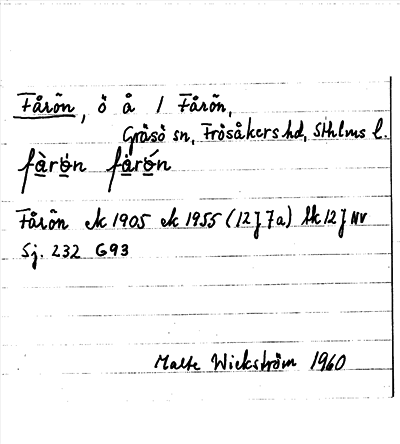 Fårön, ö å 1 Fårön,
Gräsö sn, Frösåkers hd, Sthlms l.
fàrön fårón
Fårön ek 1905 ek 1955 (12J7a) Hk12J NV
Sj. 232 G93
Malte Wickström 1960